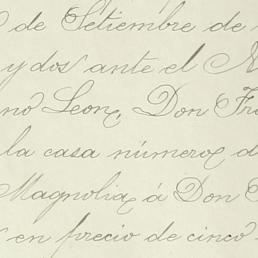 de Setiembre de
y dos ante el
no Leon, Don
la casa número
Magnolia, á Don
en precio de cinco